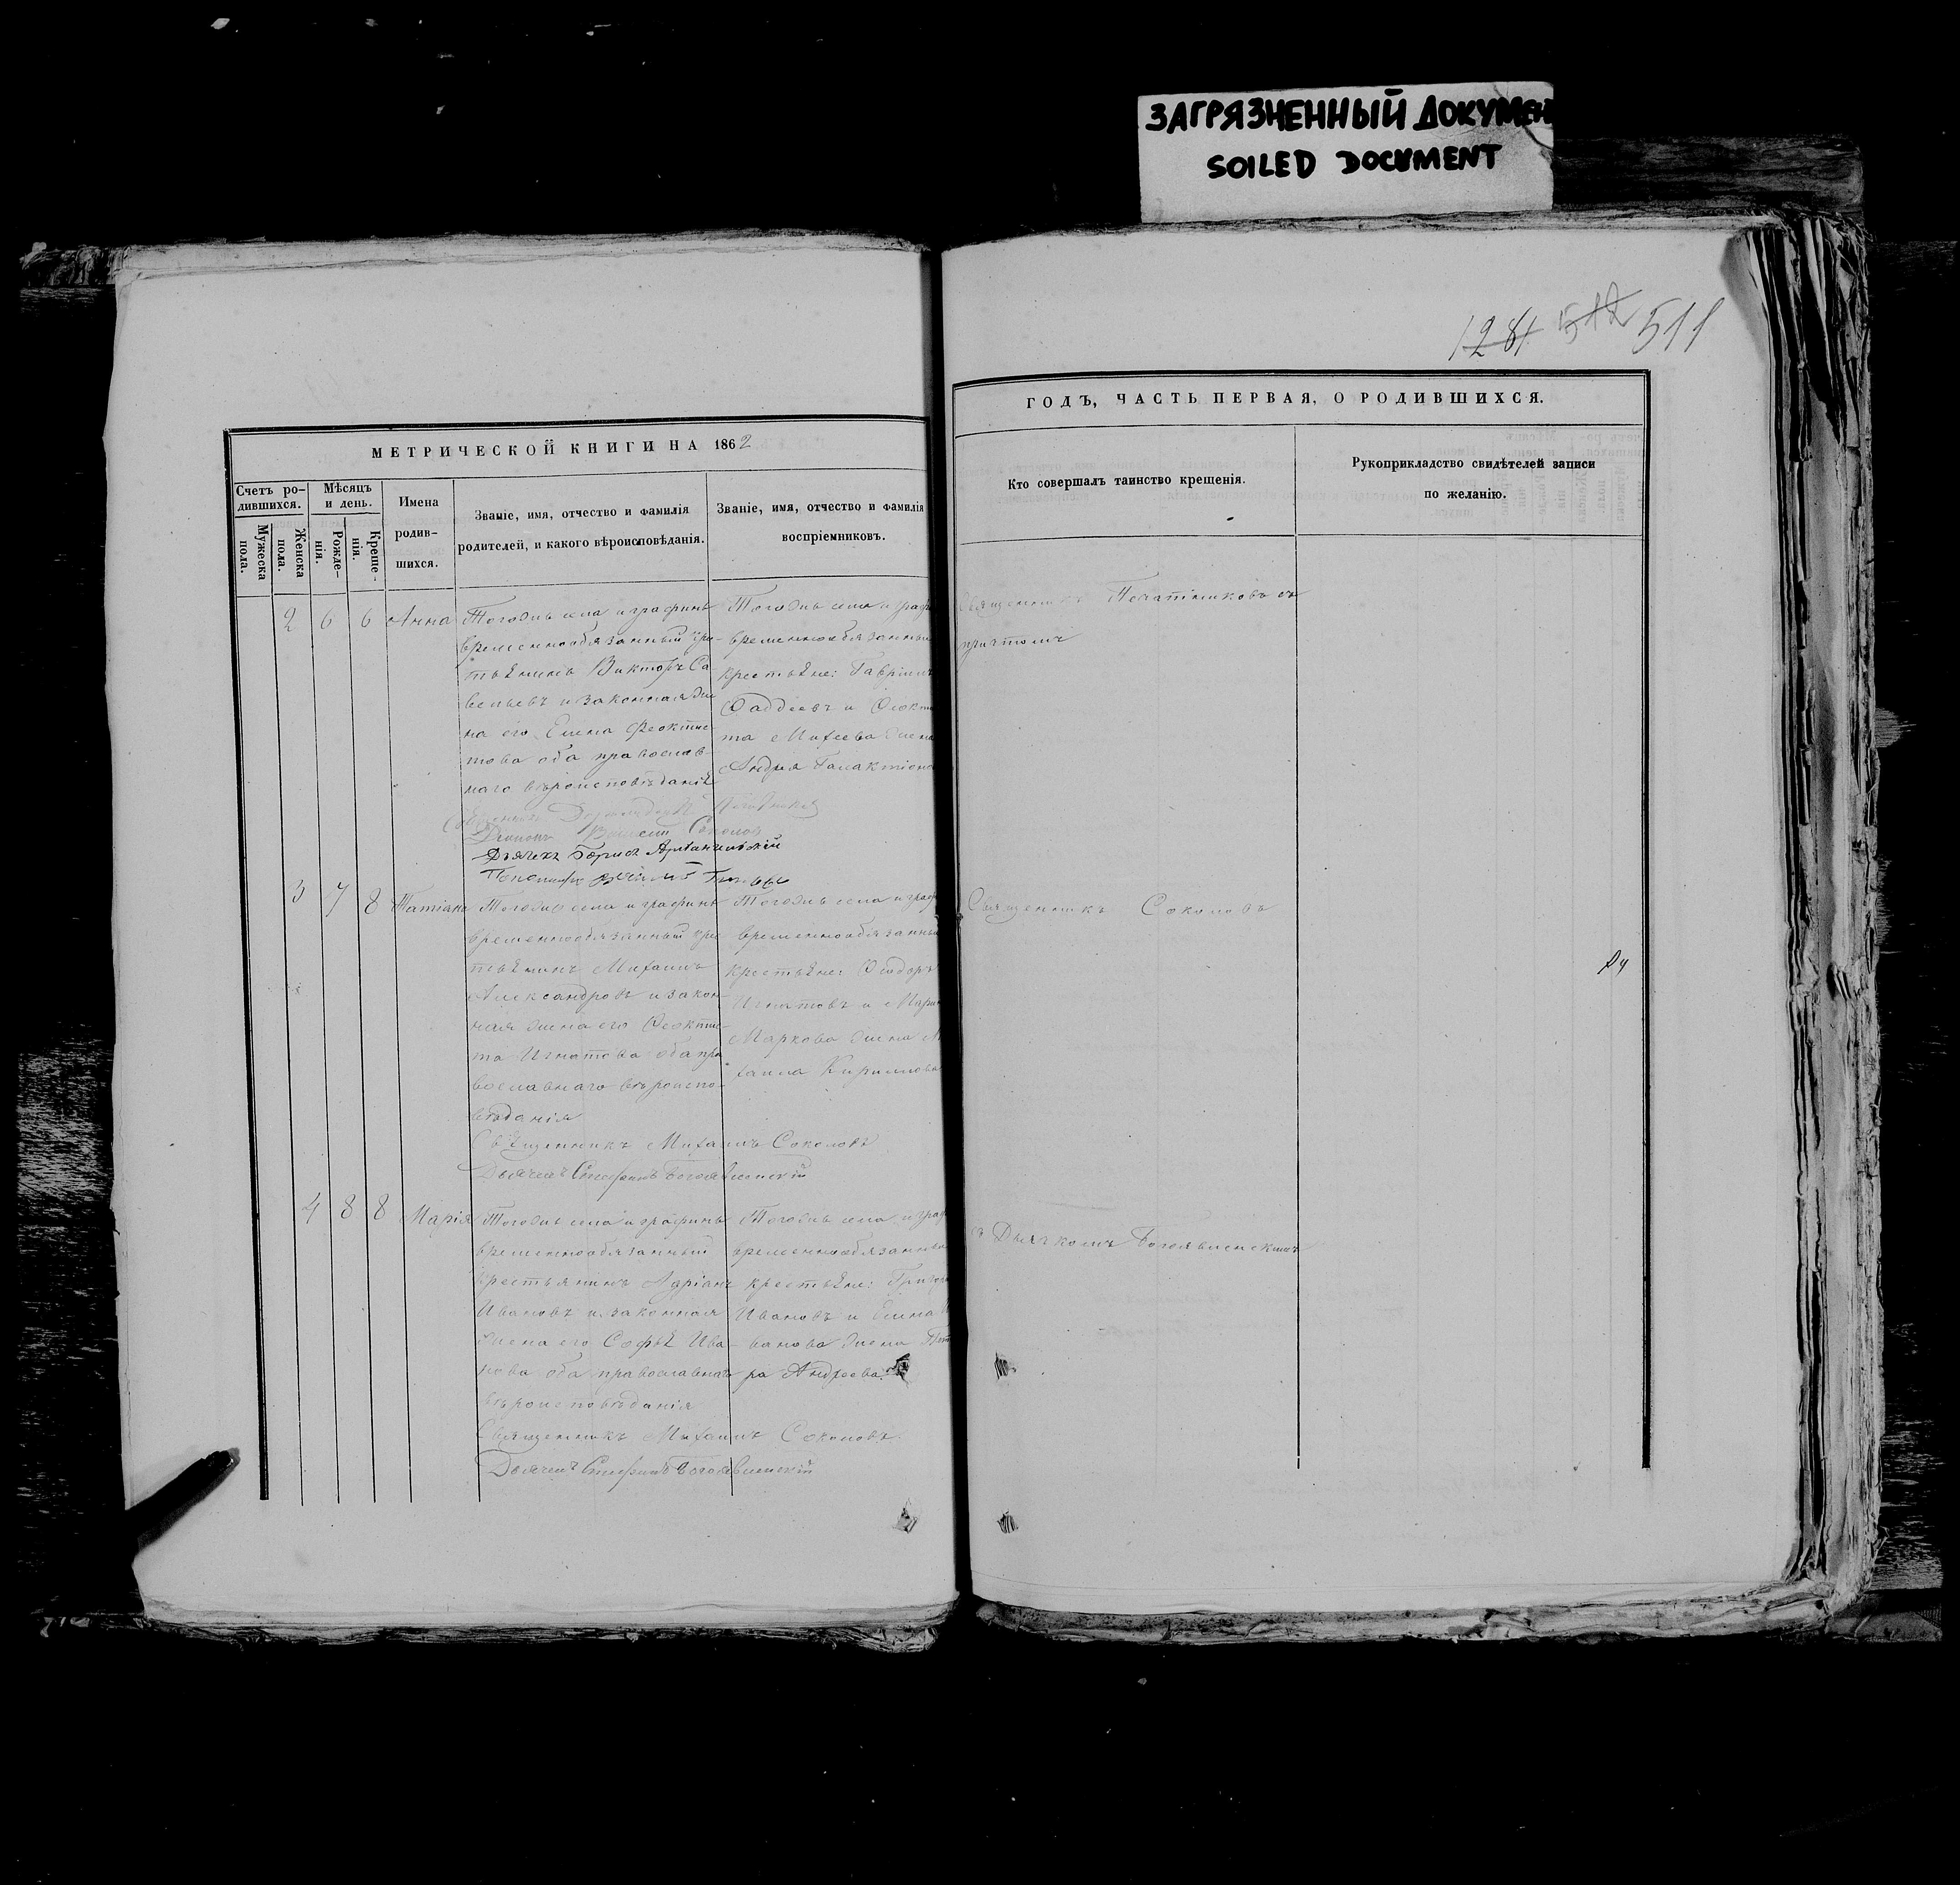 ЗАГРЯЗНЕННЫЙ ДОКУМЕН
SOILED DOCUMENT
1281 512 511
МЕТРИЧЕСКОЙ КНИГИ НА 1862
Счетъ ро-
дившихся.
Мѣсяцъ
и день.
Мужеска
пола.
Женска
пола.
Рожде-
нія.
Креще-
нія.
Имена
родив-
шихся.
Званіе, имя, отчество и фамилія
родителей, и какого вѣроисповѣданія.
Званіе, имя, отчество и фамилія
воспріемниковъ.
ГОДЪ, ЧАСТЬ ПЕРВАЯ, О РОДИВШИХСЯ.
Кто совершалъ таинство крещенія.
Рукоприкладство свидѣтелей записи
по желанію.
2 6 6 Анна
Тогожъ села и графинѣ
временнообязанный кре-
стьянинъ Викторъ Са-
вельевъ и законная же
на его Елена Феоктис-
това оба православ-
наго вѣроисповѣданія
Тогожъ села и граф
временнообязанны
крестьяне: Гавріилъ
Фаддеевъ и Феокти
та Михеева жена
Андрея Галактіона
Священникъ
причтомъ
Діаконъ Соколов
Дьячекъ Борисъ Архангельскій
3 7 8 Татіана
Тогожъ села и графинѣ
временнообязанный кре
стьянинъ Михаилъ
Александровъ и закон-
ная жена его Феоктис-
та Игнатова оба пра
вославнаго вѣроиспо-
вѣданія
Священникъ Михаилъ Соколовъ
Дьячекъ Стефанъ Богоявленскій
Тогожъ села и граф
временнообязанны
крестьяне: Феодоръ
Игнатовъ и Мари
Маркова жена М
хаила Кириллова
Священникъ Соколовъ
4 8 8 Марія
Тогожъ села и графинѣ
временнообязанный
крестьянинъ Адріанъ
Ивановъ и законная
жена его Софья Ива-
нова оба православнаго
вѣроисповѣданія
Священникъ Михаилъ Соколовъ
Дьячекъ Стефанъ Богоявленскій
Тогожъ села и граф
временнообязанны
крестьяне: Григорі
Ивановъ и Елена И
ванова жена Пет
ра Андреева
съ Дьячкомъ Богоявленскимъ